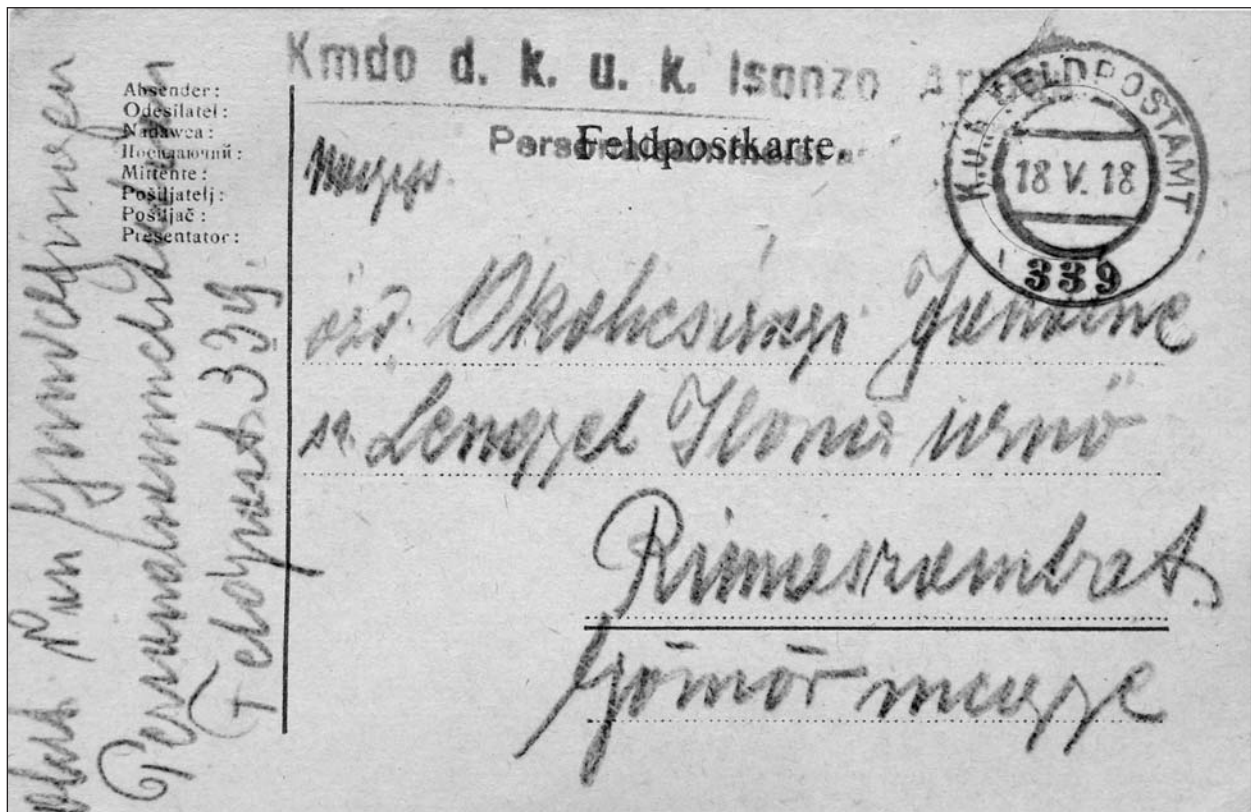 Kmdo d. k. u. k. Isonzo
Feldpostkarte.
K.u.k. FELDPOSTAMT
18 V. 18
339
Absender:
Odesílatel:
Nadawca:
Посилаючий:
Mittente:
Pošiljatelj:
Pošiljač:
Presentator:
Personalsammelstation
Feldpost 339.
özv. Okolicsányi Jánosné
sz. Lengyel Ilona úrnő
Rimaszombat
Gömör megye